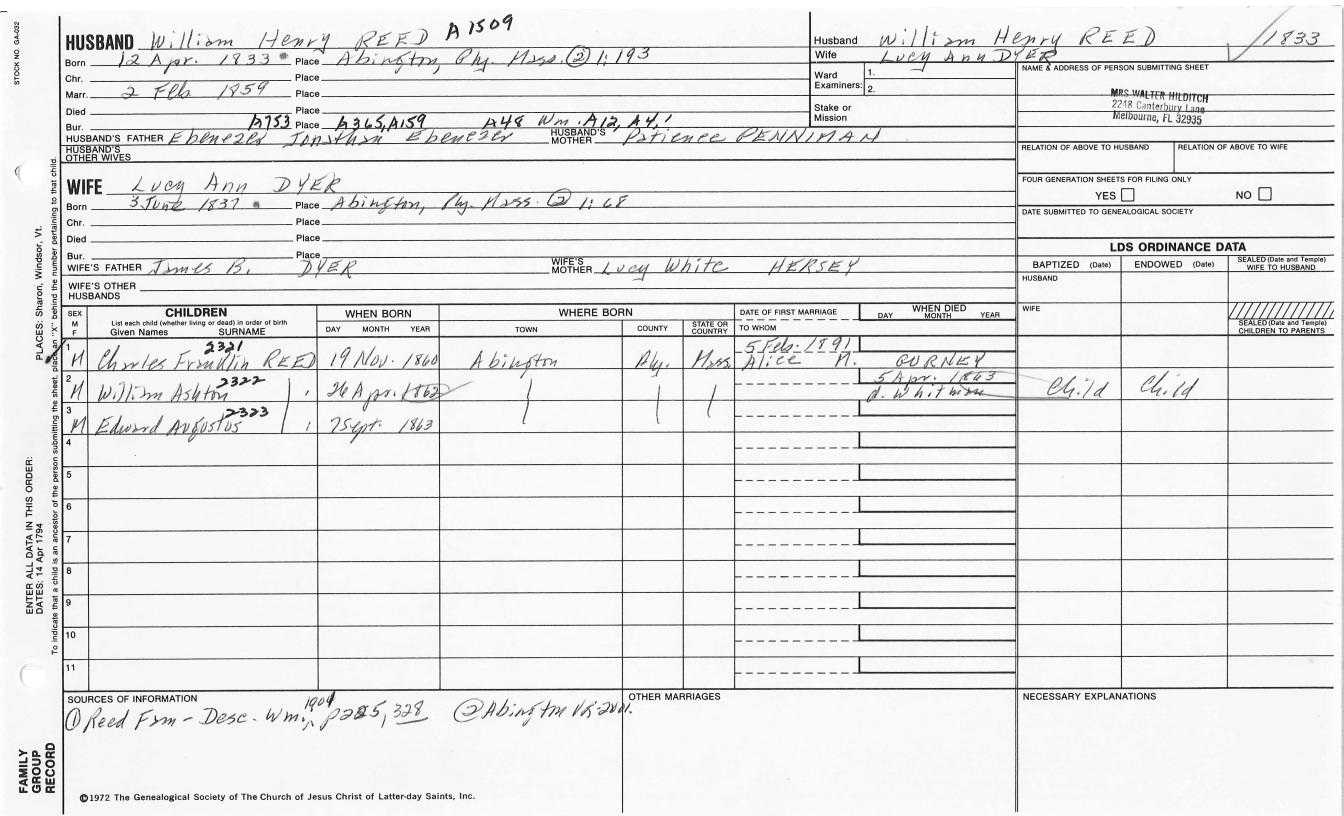 STOCK NO. GA-032
HUSBAND William Henry REED A1509
Born 12 Apr. 1833 Place Abington, Ply. Mass. ② 1:193
Chr. Place
Marr. 2 Feb 1859 Place
Died Place
Bur. A753 Place A365, A159 A48 Wm. A12, A4, 1
HUSBAND'S FATHER Ebenezer Jonathan Ebenezer HUSBAND'S MOTHER Patience PENNIMAN
HUSBAND'S OTHER WIVES
WIFE Lucy Ann DYER
Born 3 June 1837 Place Abington, Ply. Mass. ② 1:68
Chr. Place
Died Place
Bur. Place
WIFE'S FATHER James B. DYER WIFE'S MOTHER Lucy White HERSEY
WIFE'S OTHER HUSBANDS
Husband William Henry REED 1833
Wife Lucy Ann DYER
Ward Examiners: 1. 2.
Stake or Mission
NAME & ADDRESS OF PERSON SUBMITTING SHEET
MRS WALTER HILDITCH
2248 Canterbury Lane
Melbourne, FL 32935
RELATION OF ABOVE TO HUSBAND RELATION OF ABOVE TO WIFE
FOUR GENERATION SHEETS FOR FILING ONLY
YES NO
DATE SUBMITTED TO GENEALOGICAL SOCIETY
LDS ORDINANCE DATA
BAPTIZED (Date) ENDOWED (Date) SEALED (Date and Temple) WIFE TO HUSBAND
HUSBAND
WIFE
SEALED (Date and Temple) CHILDREN TO PARENTS
SEX M F CHILDREN WHEN BORN WHERE BORN DATE OF FIRST MARRIAGE WHEN DIED
List each child (whether living or dead) in order of birth
Given Names SURNAME DAY MONTH YEAR TOWN COUNTY STATE OR COUNTRY TO WHOM DAY MONTH YEAR
2321 5 Feb. 1891
1 M Charles Franklin REED 19 Nov. 1860 Abington Ply. Mass Alice M. GURNEY
2322 5 Apr. 1863
2 M William Ashton " 26 Apr. 1862 d. Whitman Child Child
2323
3 M Edward Augustus " 7 Sept. 1863
4
5
6
7
8
9
10
11
SOURCES OF INFORMATION
① Reed Fam - Desc. Wm. 1901 p 325, 328 ② Abington VR-2vol.
OTHER MARRIAGES
NECESSARY EXPLANATIONS
©1972 The Genealogical Society of The Church of Jesus Christ of Latter-day Saints, Inc.
FAMILY GROUP RECORD
ENTER ALL DATA IN THIS ORDER:
DATES: 14 Apr 1794
PLACES: Sharon, Windsor, Vt.
To indicate that a child is an ancestor of the person submitting the sheet, place an "X" behind the number pertaining to that child.